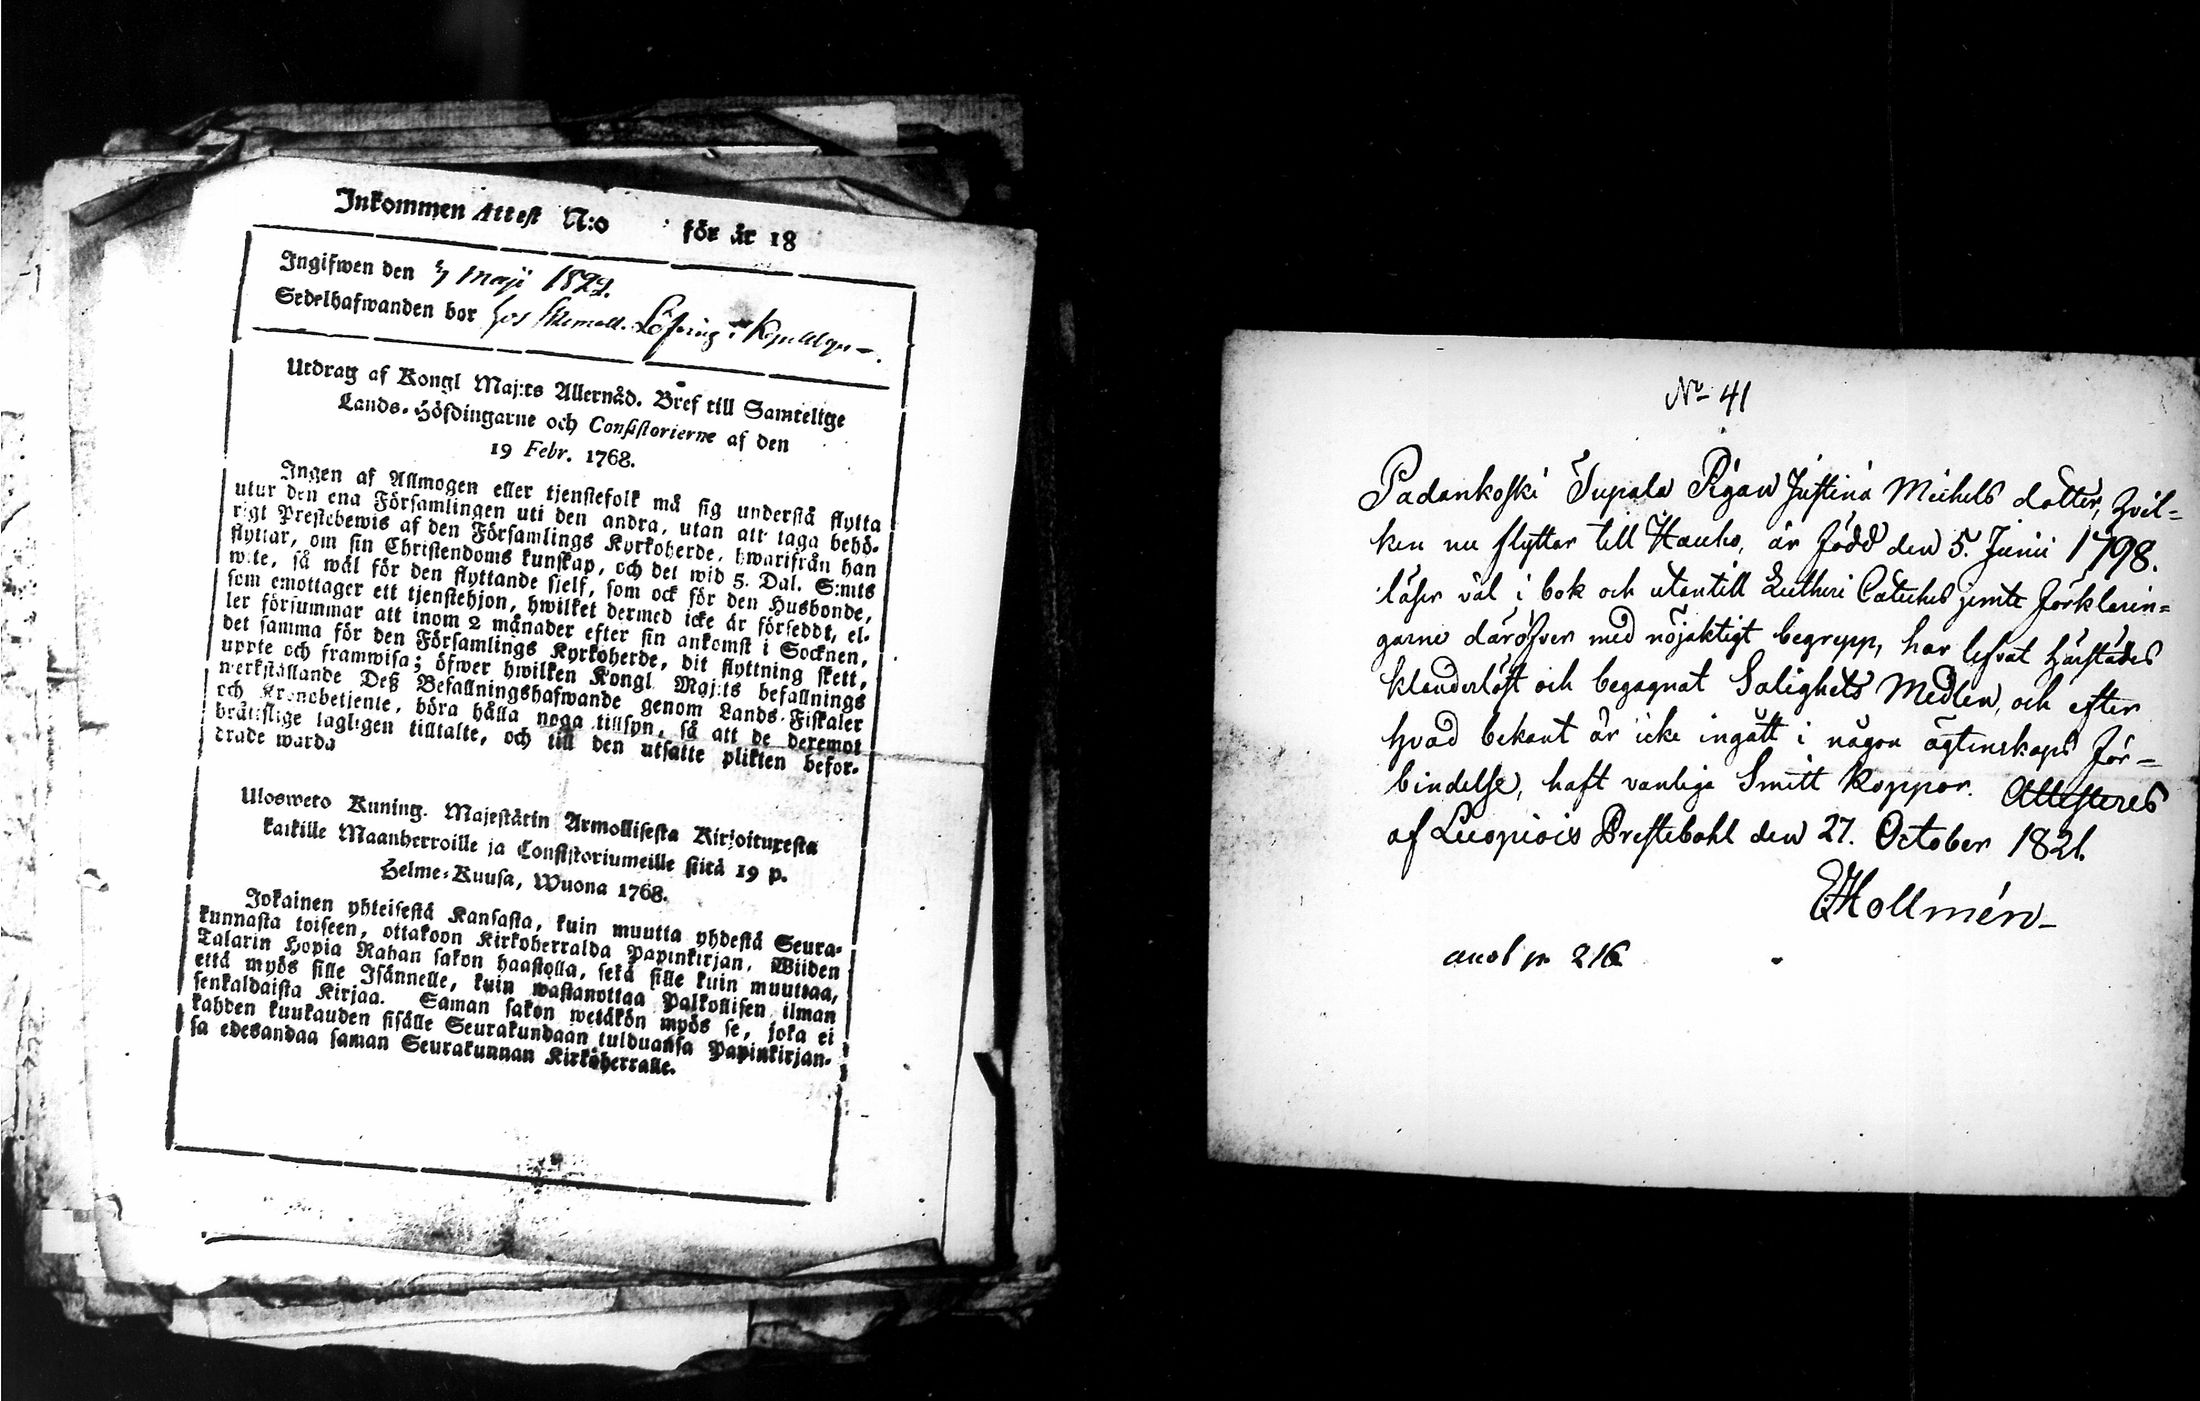 Inkommen Attest N:o för år 18
Ingifwen den 7 Maji 1822.
Sedelhafwanden bor hos
Utdrag af Kongl Maj:ts Allernåd. Bref till Samtelige
Lands-Höfdingarne och Consistorierne af den
19 Febr. 1768.
Ingen af Allmogen eller tjenstefolk må sig understå flytta
utur den ena Församlingen uti den andra, utan att taga behö-
rigt Prestebewis af den Församlings Kyrkoherde, hwarifrån han
flyttar, om sin Christendoms kunskap, och det wid 5. Dal. S:mts
wite, så wäl för den flyttande sielf, som ock för den Husbonde,
som emottager ett tjenstehjon, hwilket dermed icke är försedt, el-
ler försummar att inom 2 månader efter sin ankomst i Socknen,
det samma för den Församlings Kyrkoherde, dit flyttning skett,
uppte och framwisa; öfwer hwilken Kongl Maj:ts befallnings
werkställande Deß Befallningshafwande genom Lands-Fiskaler
och Kronobetjente, böra hålla noga tillsyn, så att de deremot
bråttslige lagligen tilltalte, och till den utsatte plikten befor-
drade warda
Ulosweto Kuning. Majestätin Armollisesta Kirjoituxesta
kaikille Maanherroille ja Consistoriumeille siitä 19 p.
Helme-Kuusa, Wuona 1768.
Jokainen yhteisestä Kansasta, kuin muutta yhdestä Seura-
kunnasta toiseen, ottakoon Kirkoherralda Papinkirjan, Wiiden
Talarin Hopia Rahan sakon haastolla, sekä sille kuin muuttaa,
että myös sille Isännelle, kuin wastanottaa Palkollisen ilman
senkaldaista Kirjaa. Saman sakon wetäkön myös se, joka ei
kahden kuukauden sisälle Seurakundaan tulduansa Papinkirjan-
sa edesandaa saman Seurakunnan Kirkoherralle.
No 41
Padankoski Tupala Pigan Justina Michels dotter, hvil-
ken nu flyttar till Hauho, är född den 5. Junii 1798.
läser väl i bok och utantill Lutheri Catechis jemte Förklarin-
garne däröfver med nöjaktigt begrepp, har lefvat härstädes
klanderlöst och begagnat Salighets Medlen, och efter
hvad bekant är icke ingått i någon ägtenskaps För-
bindelse, haft vanliga Smitt koppor. Attesteres
af Luopiois Prestebohl den 27. October 1821.
Hollmén
216